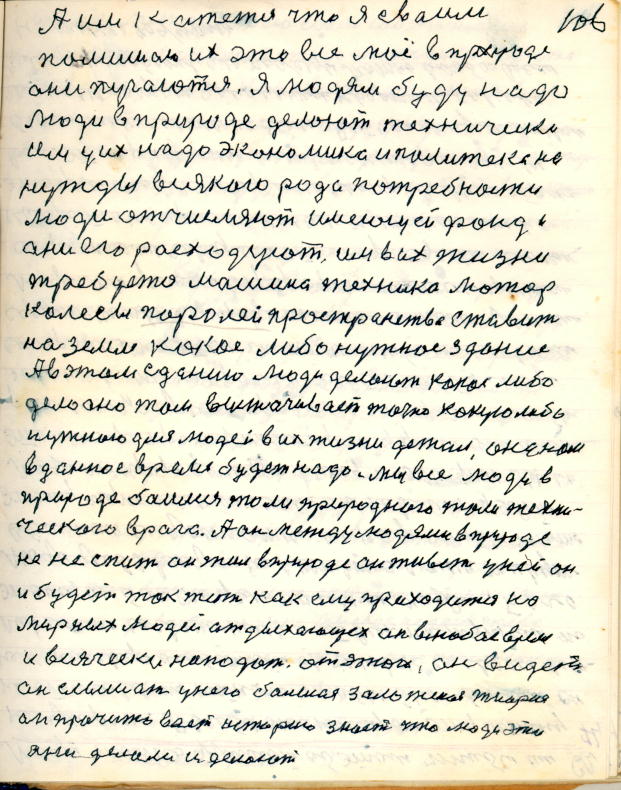 А им кажетя что я сваим 106
памишаю их это все моё в природе
ани пугаются. Я людям буду надо
люди в природе делоют технически
им у их надо экономика и политека на
нужды всякого рода потребности
люди отчисляют имеющей фонд и
ани его расходуют, им в их жизни
требуето машина техника мотор
колесы поролей пространства ставит
на земле кокое либо нужное здание
А в этом сданию люди делоют какое либо
дело оно там вытачивает точно какую либо
нужною для людей в их жизни детал, она нам
в данное время будет надо. мы все люди в
природе боимся толи природного толи техни-
ческого врага. А он между людями в природе
не не спит он там в природе он живет у ней он
и будет так жит как ему приходится на
мирных людей отдыхающих он в любое время
и всячески нападат. от этого, он видет
он слышат у него балшая заложеная тиория
он прачитывает историю знает что люди это
яни делали и делоют